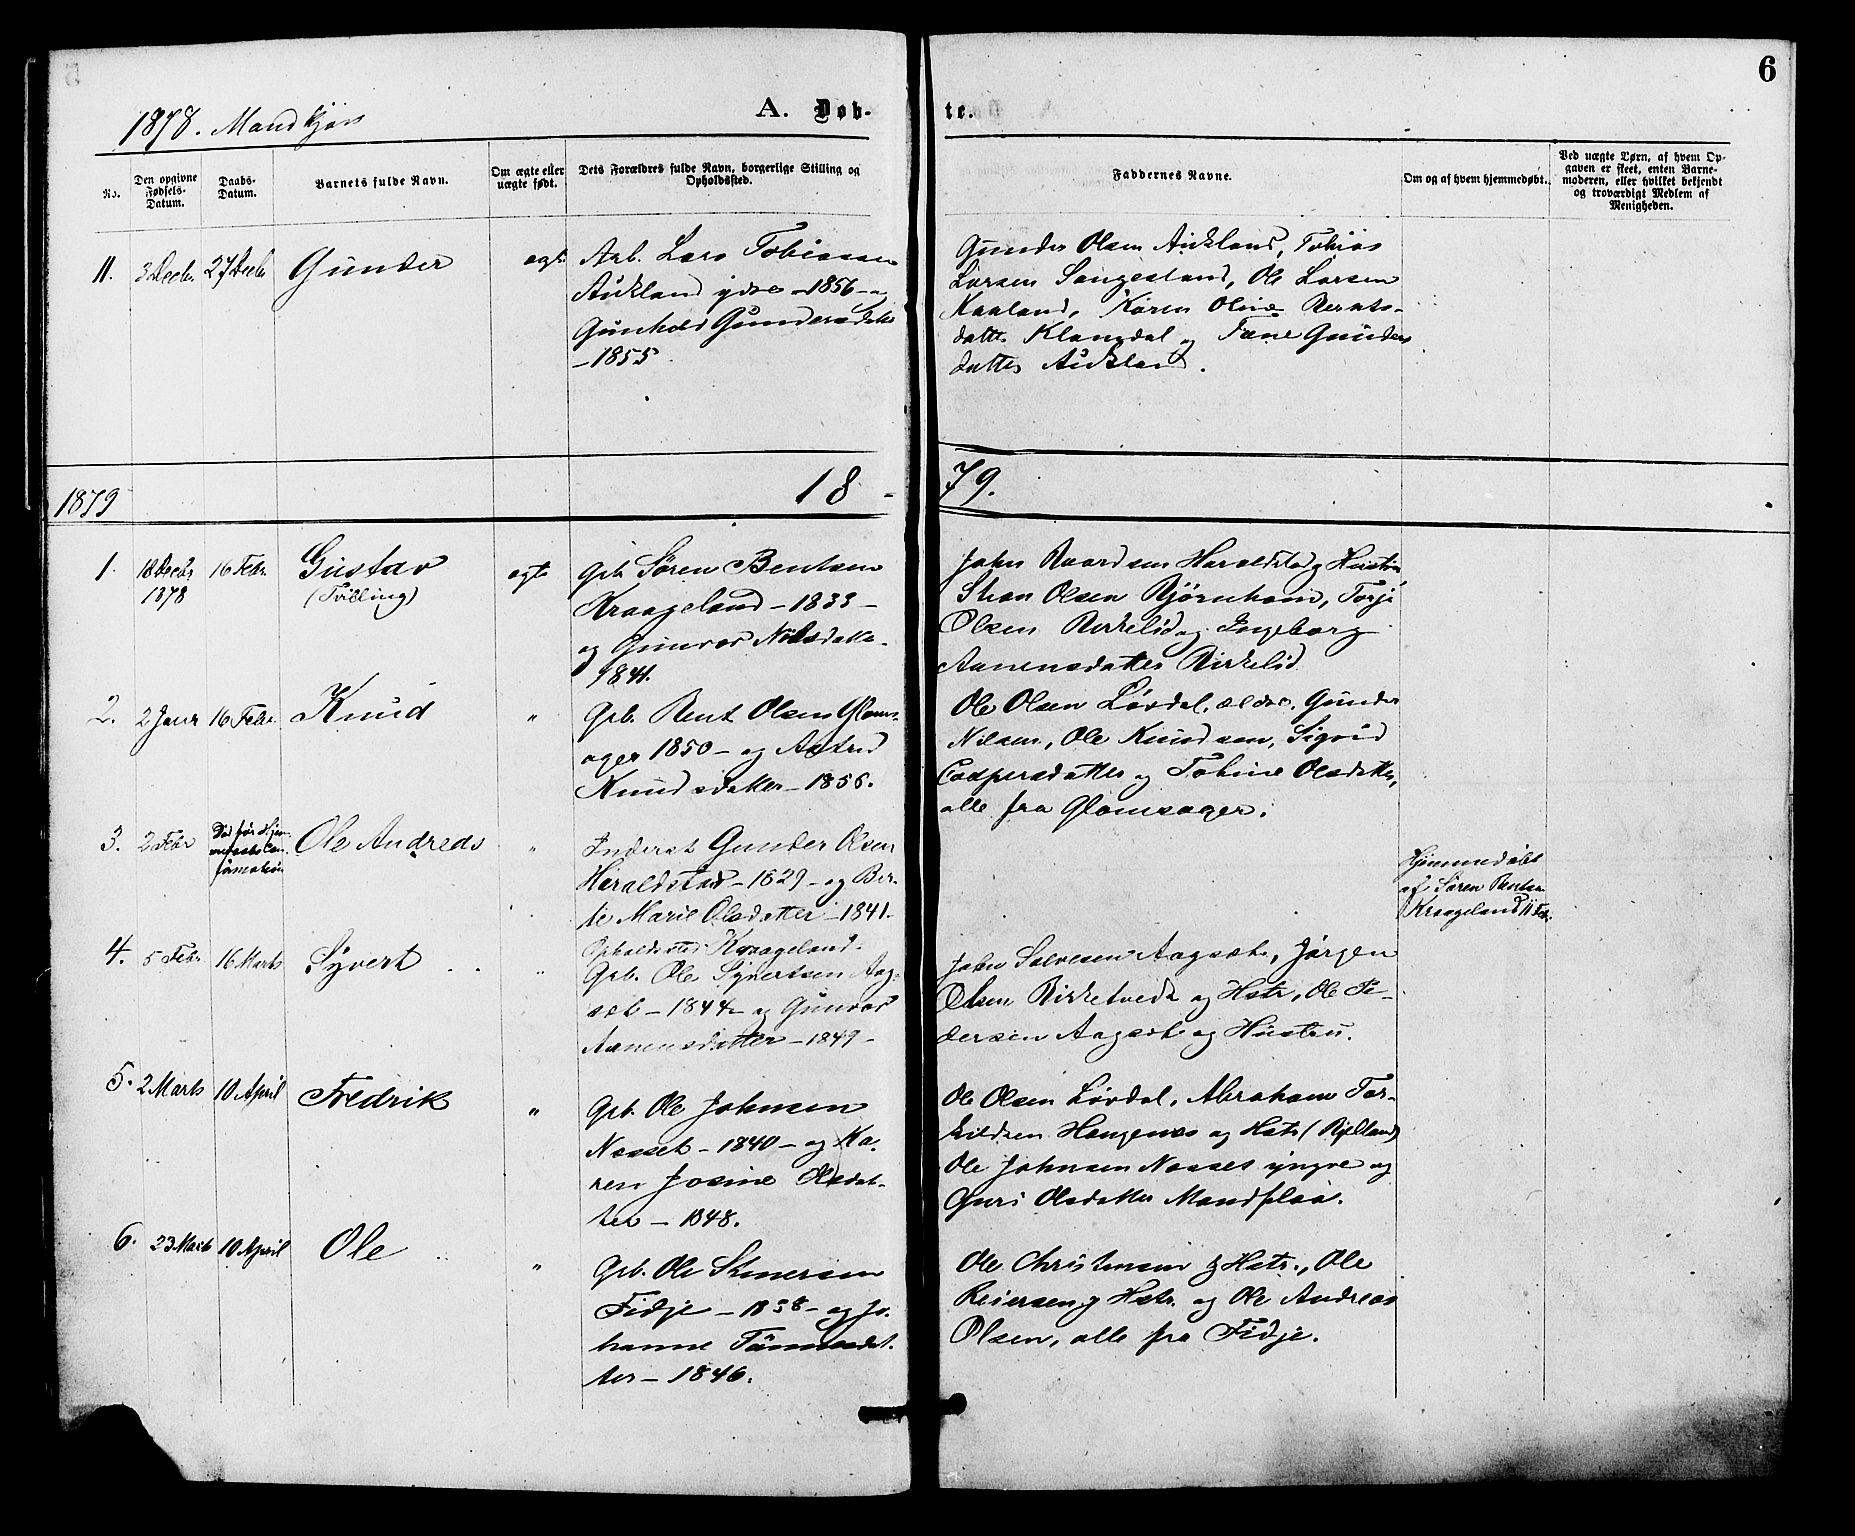 6
1878. Mandkjøn
A. Døb-
te.
No.
Den opgivne Fødsels-Datum.
Daabs-Datum.
Barnets fulde Navn.
Om ægte eller uægte født.
Dets Forældres fulde Navn, borgerlige Stilling og Opholdssted.
Faddernes Navne.
Om og af hvem hjemmedøbt.
Ved uægte Børn, af hvem Opgaven er skeet, enten Barnemoderen, eller hvilket bekjendt og troværdigt Medlem af Menigheden.
11. 3 Decbr. 27 Decbr Gunder ægte
Arb. Lars Tobiassen
Aukland ydre - 1856 - og
Gunhild Gundersdatter
- 1855.
Gunder Olsen Aukland, Tobias
Larsen Sangesland, Ole Larsen
Kaaland, Karen Oline Bernts-
datter Klangdal og Tone Gunders
datter Aukland.
1879
18-
79.
1. 18 Decbr 1878 16 Febr. Gustav (Tvilling) ægte
Gbr. Søren Bentsen
Kraageland - 1833 -
og Gunvor Nilsdatter -
1841.
John Baardsen Haraldstad og Hustru
Stian Olsen Bjørnham, Torje
Olsen Birkelid og Ingeborg
Aanensdatter Birkelid.
2. 2 Janr 16 Febr. Knud "
Grb. Bent Olsen Gloms-
ager 1850 - og Astrid
Knudsdatter - 1856.
Ole Olsen Løvdal, ældre, Gunder
Nilsen, Ole Knudsen, Sigrid
Caspersdatter og Tobine Olsdatter,
alle fra Glomsager.
3. 2 Febr Død før Hjem-
medaabs Con-
firmation Ole Andreas "
Inderst Gunder Olsen
Haraldstad - 1829 - og Ber-
te Marie Olsdatter - 1841.
Opholdssted Kraageland.
Hjemmedøbt
af Søren Bentsen
Kraageland 11 Feb.
4. 5 Febr. 16 Marts Syvert "
Grb. Ole Syvertsen Aag-
sæt - 1844 - og Gunvor
Aanensdatter - 1849 -
John Salvesen Aagsæt, Jørgen
Olsen Birketvedt og Hstr, Ole Pe-
dersen Aagsæt og Hustru.
5. 2 Marts 10 April Fredrik "
Grb. Ole Johnsen
Nosset - 1840 - og Ka-
ren Josine Olsdat-
ter - 1848.
Ole Olsen Løvdal, Abraham Tor-
kildsen Haugenes og Hstr (Bjelland)
Ole Johnsen Nosset yngre og
Guri Olsdatter Mandflaa.
6. 23 Marts 10 April Ole "
Grb. Ole Stenersen
Fidje - 1838 - og Jo-
hanne Tønnesdat-
ter - 1846.
Ole Christensen og Hstr., Ole
Reiersen og Hstr. og Ole Andreas
Olsen, alle fra Fidje.